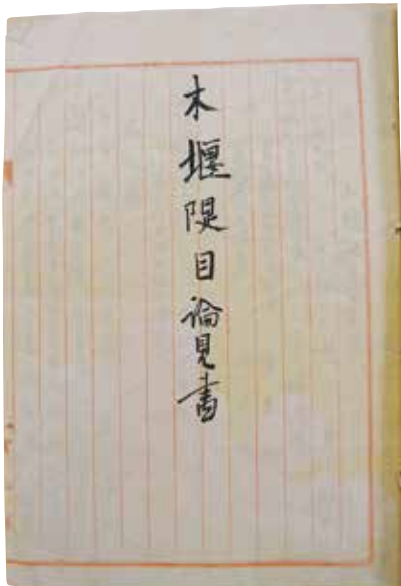 木堰隄目論見書